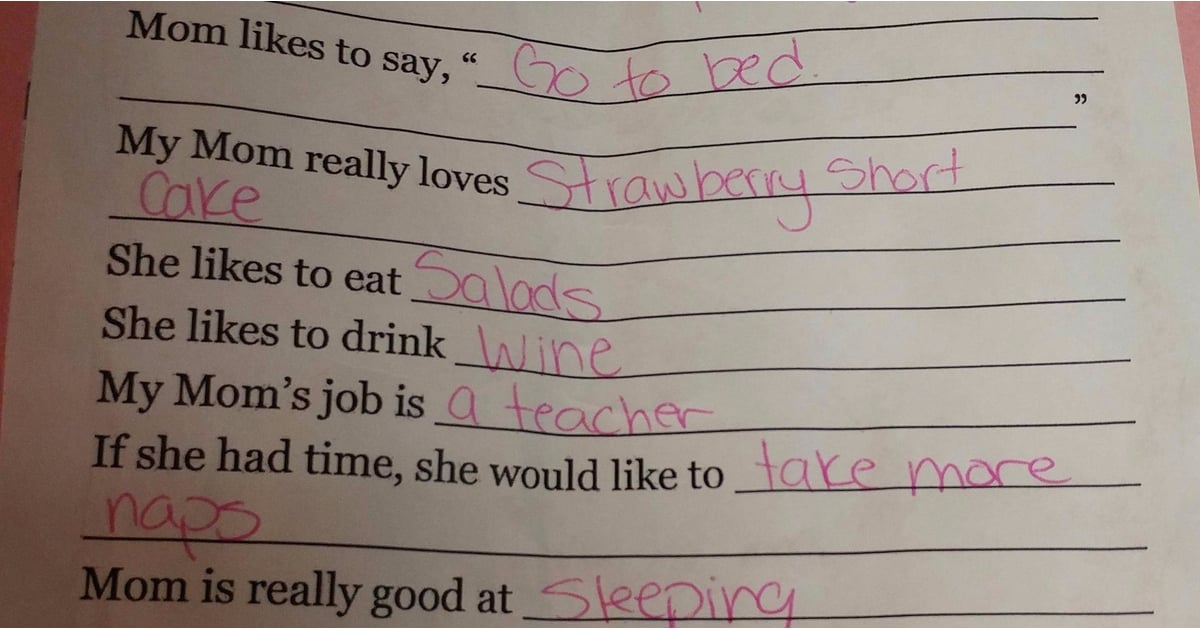 Mom likes to say, “ Go to bed.
”
My Mom really loves Strawberry Short
Cake
She likes to eat Salads
She likes to drink Wine
My Mom’s job is a teacher
If she had time, she would like to take more
naps
Mom is really good at Sleeping